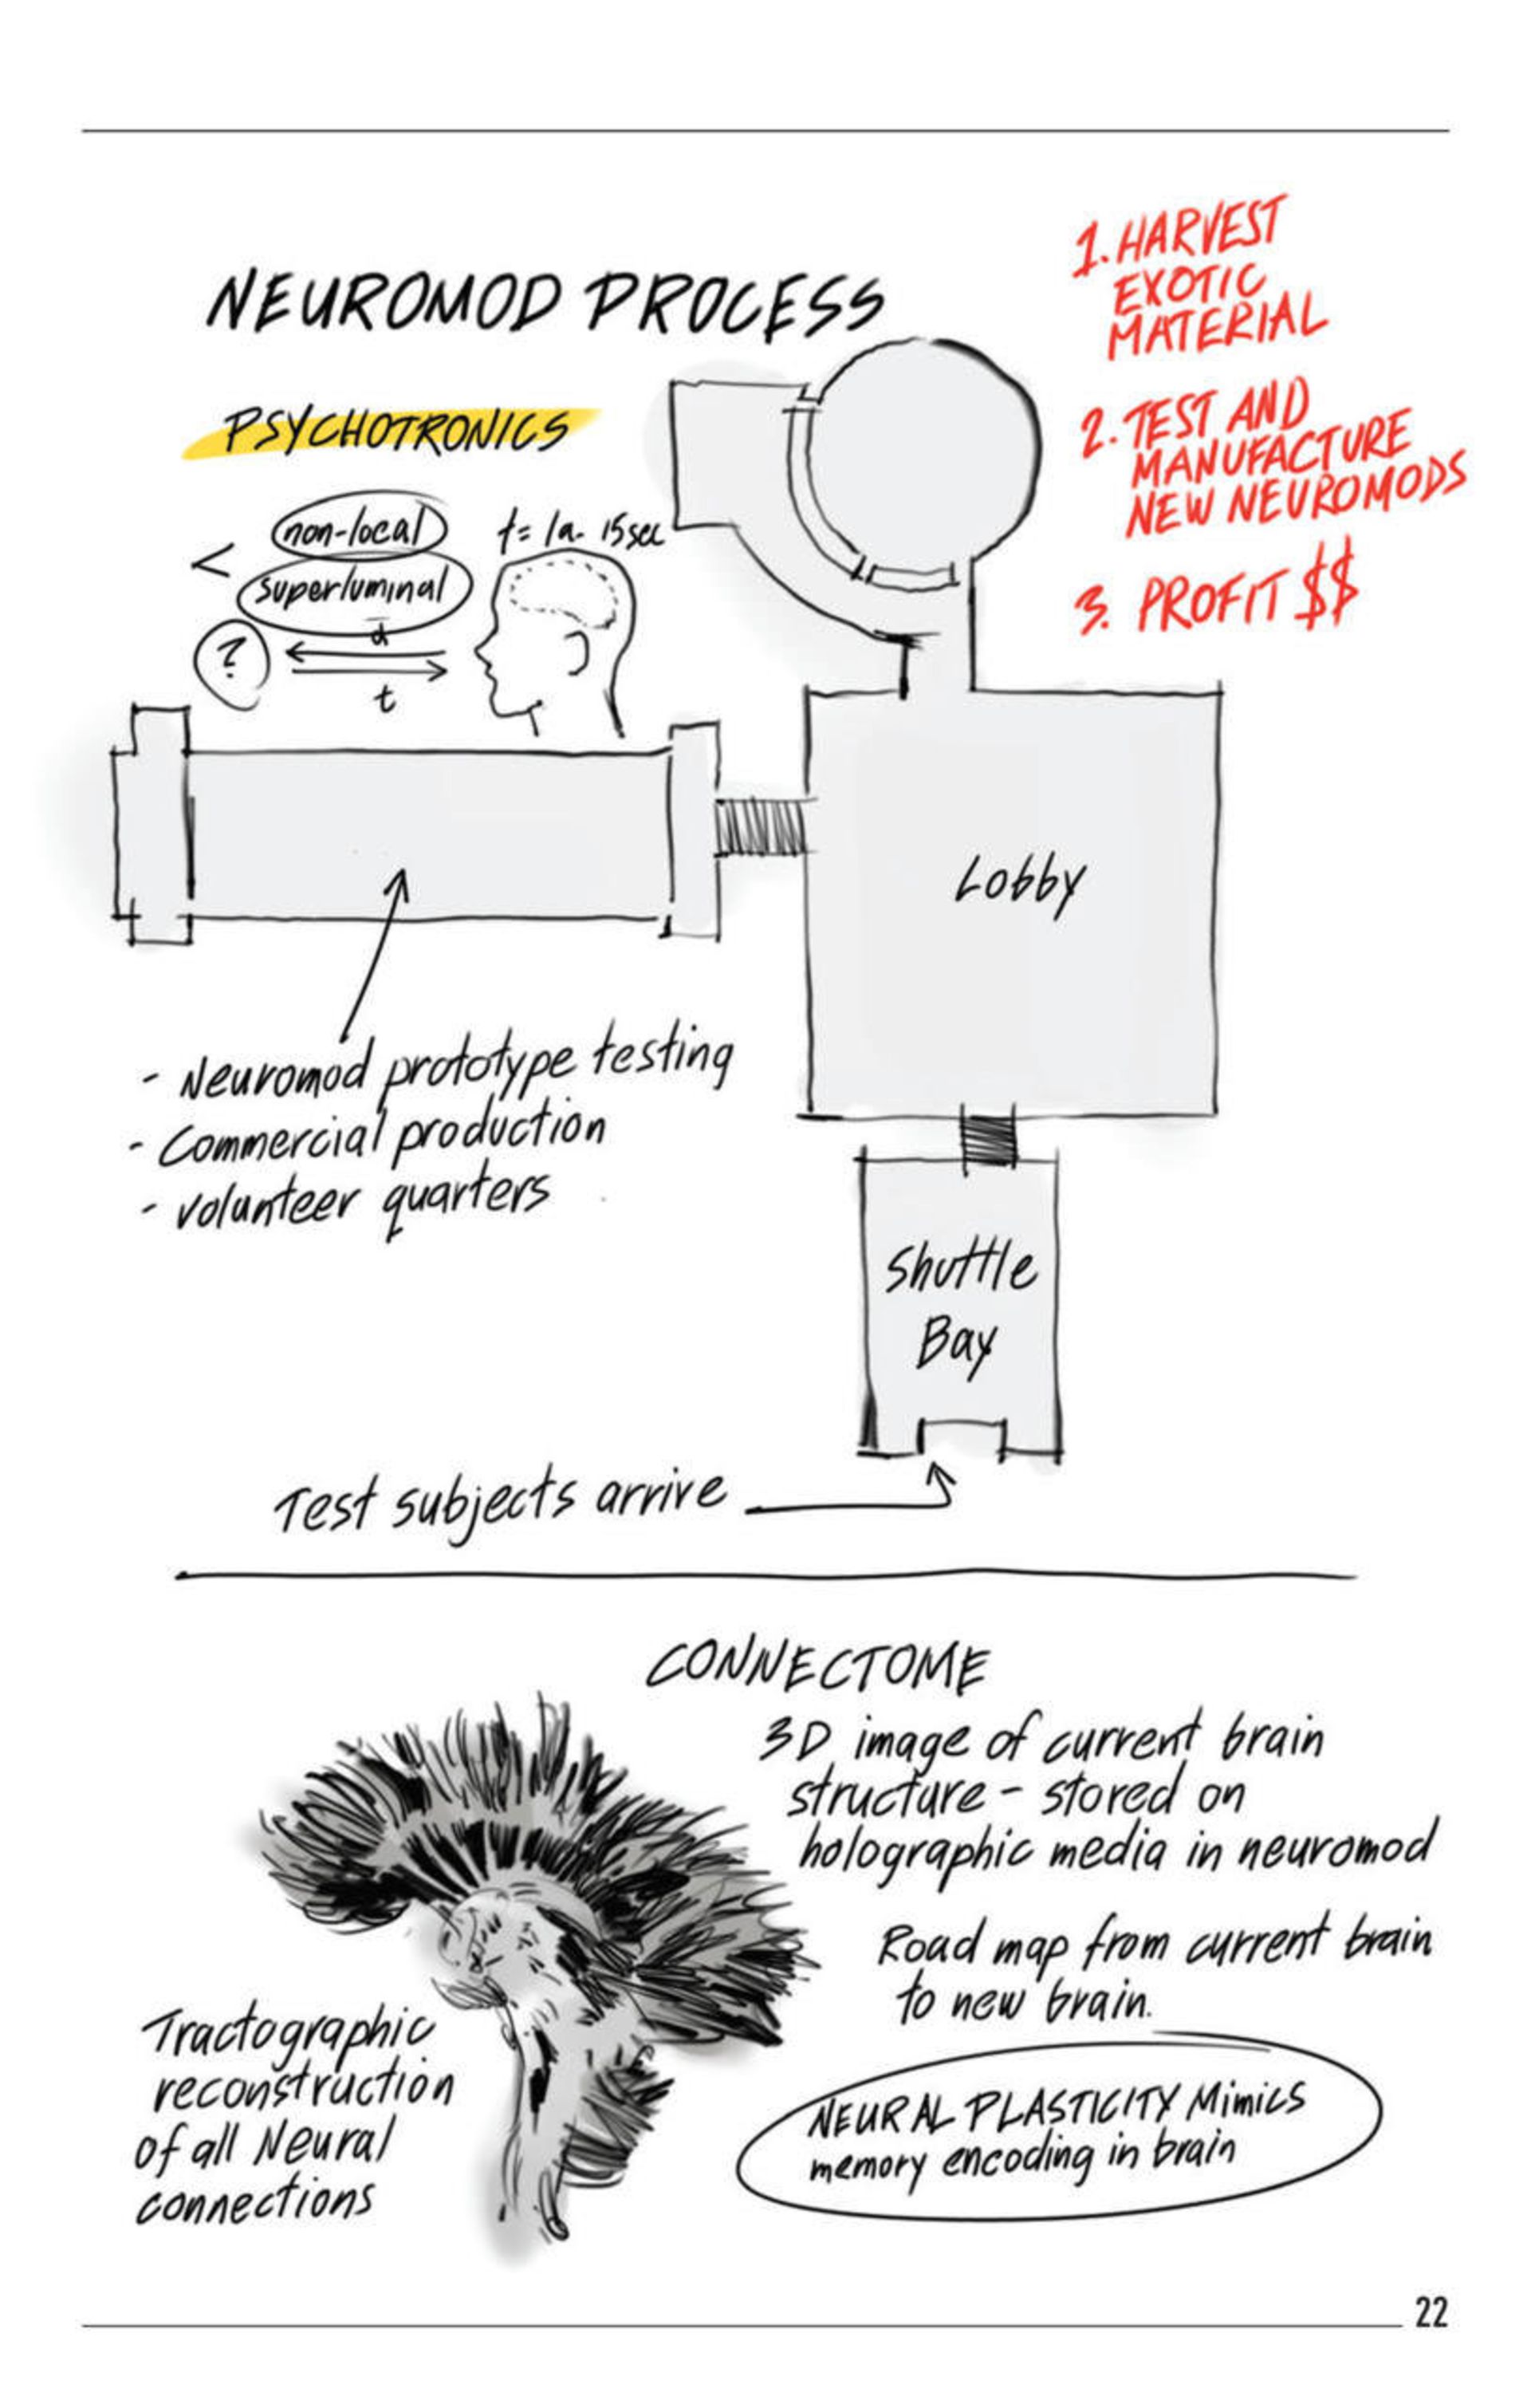 NEUROMOD PROCESS
PSYCHOTRONICS
1. HARVEST
EXOTIC
MATERIAL
2. TEST AND
MANUFACTURE
NEW NEUROMODS
3. PROFIT $$
< non-local
superluminal
t= 1a- 15sec
?
d
t
Lobby
- Neuromod prototype testing
- Commercial production
- volunteer quarters
Shuttle
Bay
Test subjects arrive
CONNECTOME
3D image of current brain
structure - stored on
holographic media in neuromod
Road map from current brain
to new brain.
Tractographic
reconstruction
of all Neural
connections
NEURAL PLASTICITY Mimics
memory encoding in brain
22